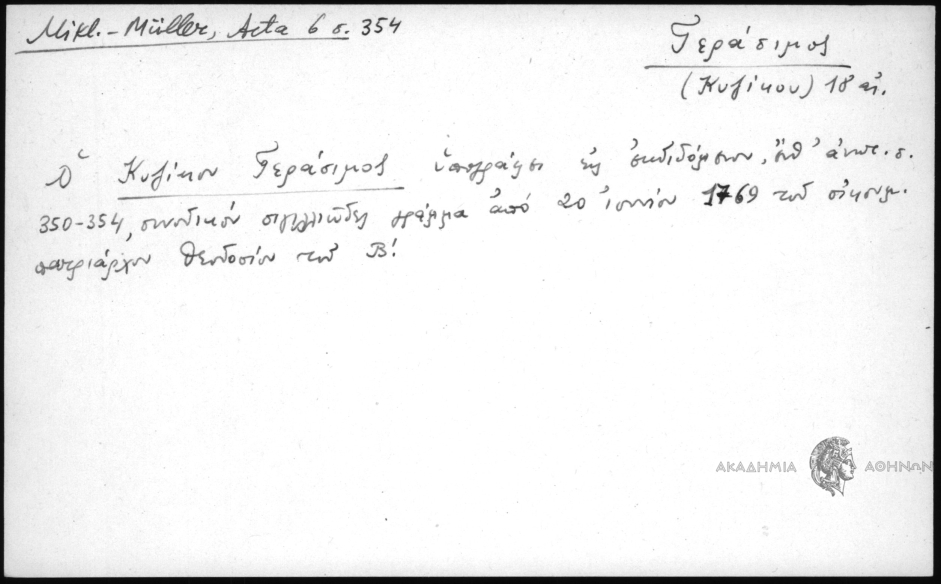 Mikl.- Müller, Acta 6 σ. 354
Γεράσιμος
(Κυζίκου) 18 αἰ.
Ὁ Κυζίκου Γεράσιμος ὑπογράφει εἰς ἐκδιδόμενον, ἔνθ' ἀνωτ. σ.
350-354, συνοδικόν σιγιλλιῶδες γράμμα ἀπό 20 ἰουνίου 1769 τοῦ οἰκουμ.
πατριάρχου Θεοδοσίου τοῦ Β!
ΑΚΑΔΗΜΙΑ ΑΘΗΝΩΝ